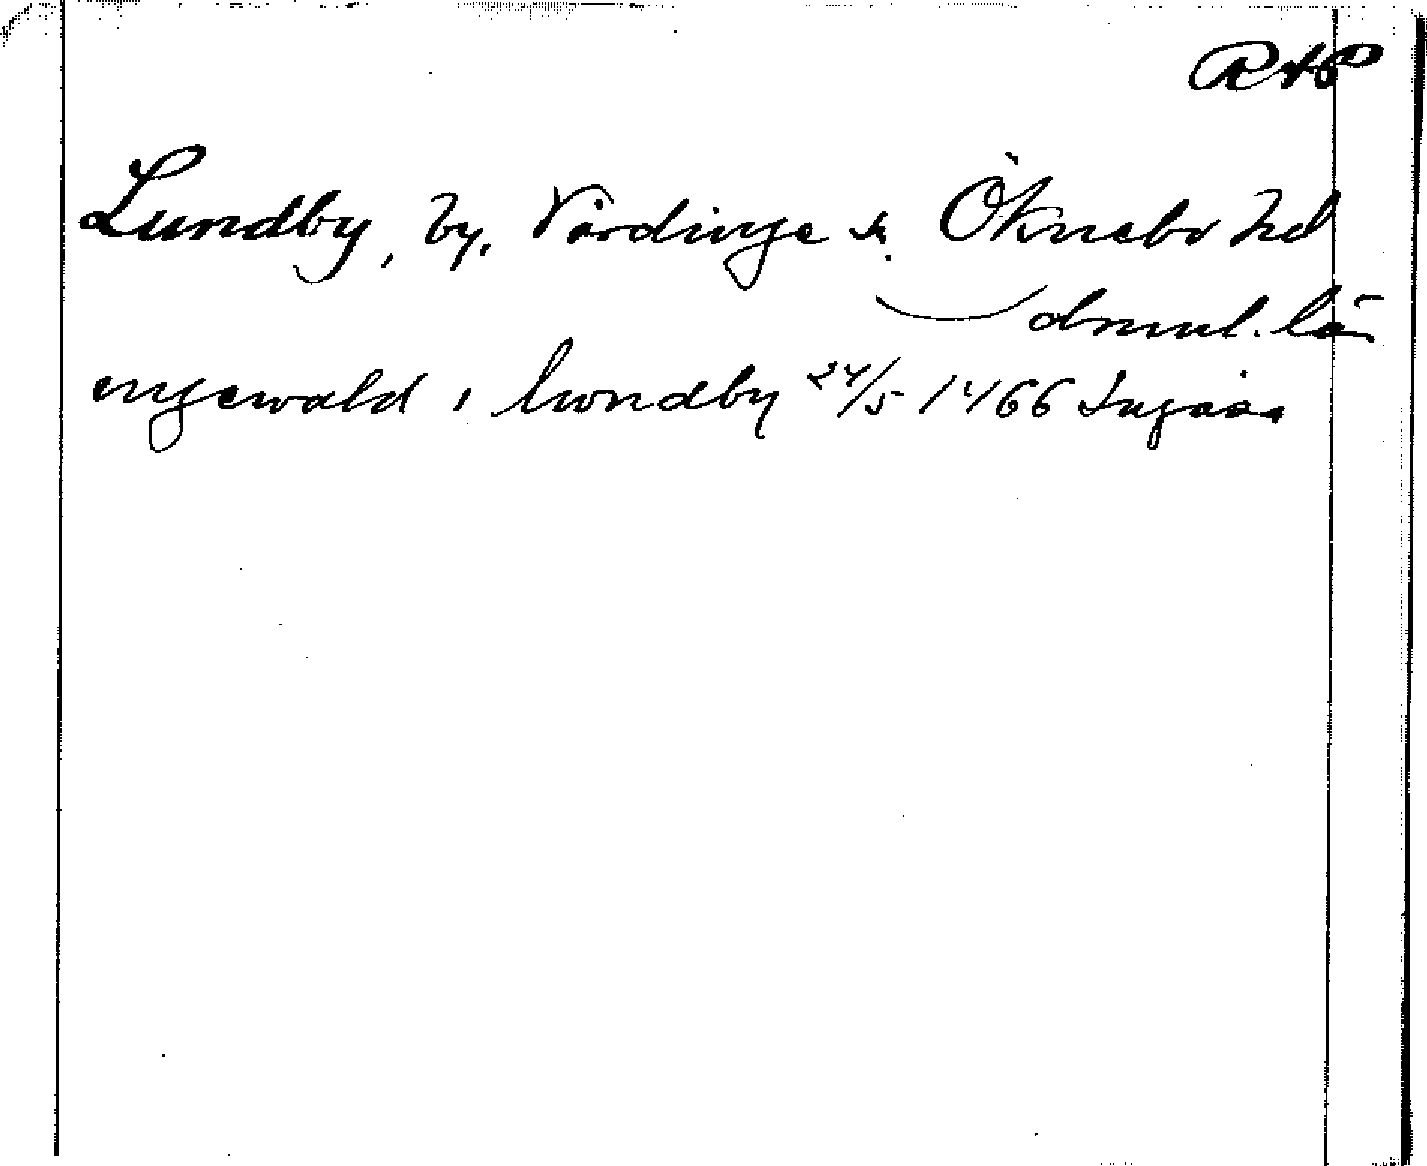 RAP
Lundby, by, Vårdinge sn. Öknebo hd
Srml. län
engewald i lwndby 24/5 1466 Ingaas